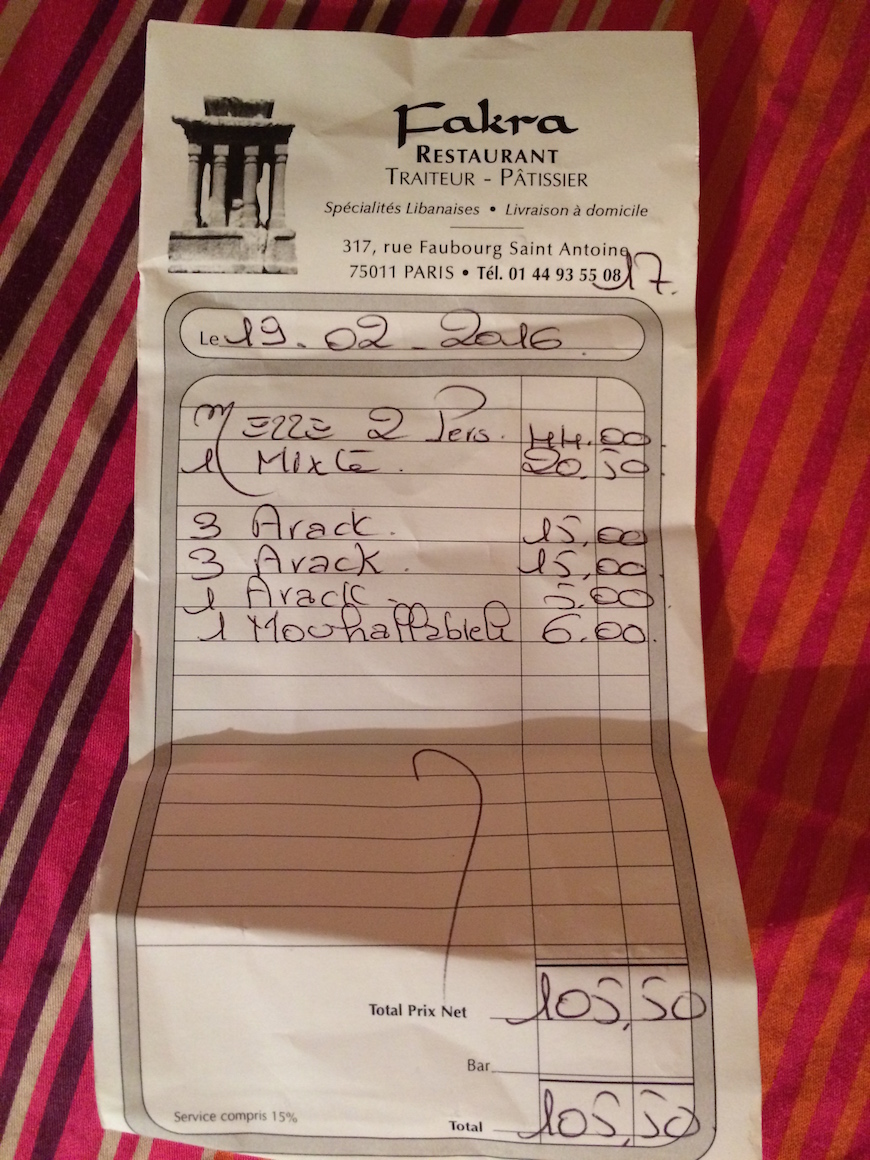 Fakra
RESTAURANT
TRAITEUR - PÂTISSIER
Spécialités Libanaises • Livraison à domicile
317, rue Faubourg Saint Antoine
75011 PARIS • Tél. 01 44 93 55 08
17.
Le 19.02-2016.
Mezze 2 Pers. 44.00
1 Mixte. 20.50
3 Arack. 15,00
3 Arack. 15,00
1 Arack. 5.00
1 Mouhallabieh 6.00.
Total Prix Net 105,50
Bar
Service compris 15%
Total 105,50